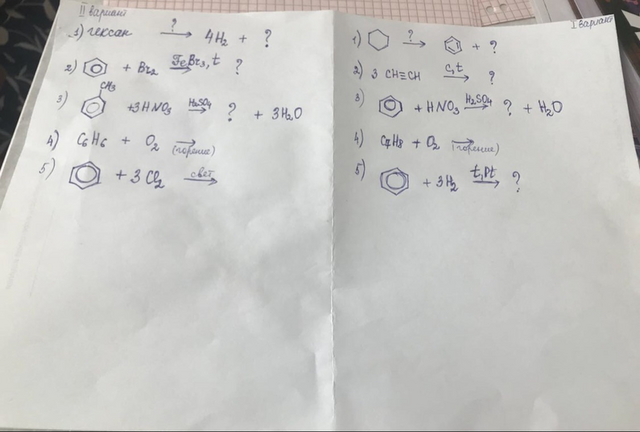 II вариант
1) гексан —?→ 4H₂ + ?
2) + Br₂ —FeBr₃, t→ ?
CH₃
3) + 3HNO₃ —H₂SO₄→ ? + 3H₂O
4) C₆H₆ + O₂ → (горение)
5) + 3Cl₂ —свет→
I вариант
1) —?→ + ?
2) 3 CH≡CH —C, t→ ?
3) + HNO₃ —H₂SO₄→ ? + H₂O
4) C₇H₈ + O₂ → (горение)
5) + 3H₂ —t, Pt→ ?